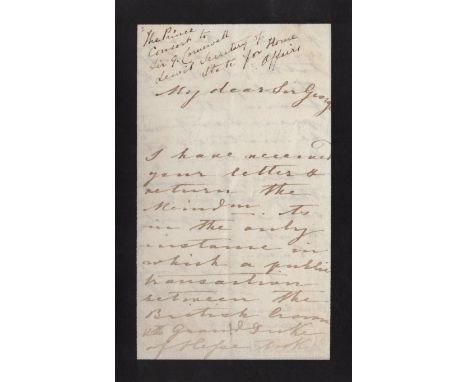 The Prince
Consort to
Sir G. Cornewall
Lewis Secretary of
State for Home
Affairs
My dear Sir George
I have received
your letter &
return the
to
in the only
instance in
which a public
transaction
between the
British Crown
Grand Duke
of Hesse took